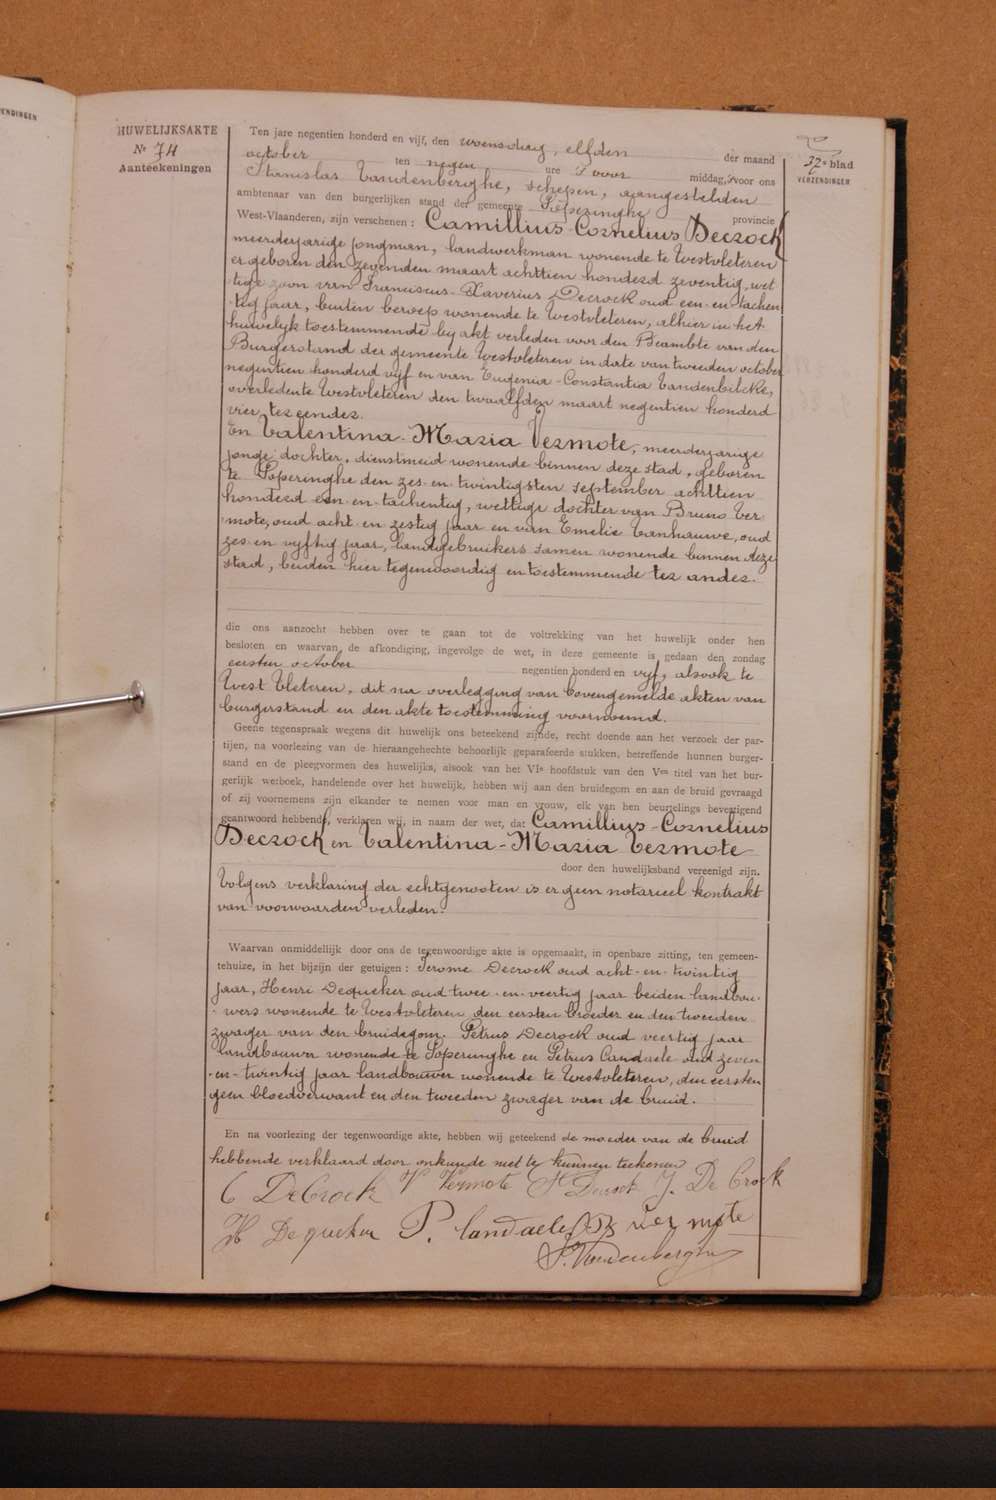 ZENDINGEN
HUWELIJKSAKTE
Nr 74
Aanteekeningen
32e blad
VERZENDINGEN
Ten jare negentien honderd en vijf, den woensdag, elfden der maand
october ten negen ure voor middag, voor ons
Stanislas Vandenberghe, schepen, aangestelden
ambtenaar van den burgerlijken stand der gemeente Poperinghe provincie
West-Vlaanderen, zijn verschenen: Camillius-Cornelius Decrock
meerderjarige jongman, landwerkman wonende te Westvleteren
er geboren den zevenden maart achttien honderd zeventig, wet
tige zoon van Franciscus-Xaverius Decrock oud een-en-tachen
tig jaar, buiten beroep wonende te Westvleteren, alhier in het
huwelyk toestemmende by akt verleden voor den Beambte van den
Burgerstand der gemeente Westvleteren in date van tweeden october
negentien honderd vyf en van Eugenia-Constantia Vandenbilcke,
overledente Westvleteren den twaalfden maart negentien honderd
vier, ter eender.
En Valentina-Maria Vermote, meerderjarige
jonge dochter, dienstmeid wonende binnen deze stad, geboren
te Poperinghe den zes-en-twintigsten september achttien
honderd een-en-tachentig, wettige dochter van Bruno Ver
mote, oud acht-en-zestig jaar en van Emelie Vanhauwe, oud
zes-en-vyftig jaar, landgebruikers samen wonende binnen deze
stad, beiden hier tegenwoordig en toestemmende ter ander.
die ons aanzocht hebben over te gaan tot de voltrekking van het huwelijk onder hen
besloten en waarvan de afkondiging, ingevolge de wet, in deze gemeente is gedaan den zondag
eersten october negentien honderd en vyf, alsook te
West Vleteren, dit na overlegging van bovengemelde akten van
burgerstand en den akte toestemming voornoemd.
Geene tegenspraak wegens dit huwelijk ons beteekend zijnde, recht doende aan het verzoek der par-
tijen, na voorlezing van de hieraangehechte behoorlijk geparafeerde stukken, betreffende hunnen burger-
stand en de pleegvormen des huwelijks, alsook van het VIe hoofdstuk van den Ven titel van het bur-
gerlijk wetboek, handelende over het huwelijk, hebben wij aan den bruidegom en aan de bruid gevraagd
of zij voornemens zijn elkander te nemen voor man en vrouw, elk van hen beurtelings bevestigend
geantwoord hebbende, verklaren wij, in naam der wet, dat Camillius-Cornelius
Decrock en Valentina-Maria Vermote
door den huwelijksband vereenigd zijn.
Volgens verklaring der echtgenooten is er geen notarieel kontrakt
van voorwaarden verleden.
Waarvan onmiddellijk door ons de tegenwoordige akte is opgemaakt, in openbare zitting, ten gemeen-
tehuize, in het bijzijn der getuigen: Jerome Decrock oud acht-en-twintig
jaar, Henri Dequeker oud twee-en-veertig jaar beiden landbou-
wers wonende te Westvleteren den eersten broeder en den tweeden
zwager van den bruidegom. Petrus Decrock oud veertig jaar
landbouwer wonende te Poperinghe en Petrus Candaele oud zeven
-en-twintig jaar landbouwer wonende te Westvleteren, den eersten
geen bloedverwant en den tweeden zwager van de bruid.
En na voorlezing der tegenwoordige akte, hebben wij geteekend de moeder van de bruid
hebbende verklaard door onkunde niet te kunnen teekenen
C DeCrock V Vermote P Decrock J. De Crock
H Dequeker P. Candaele B vermote
S. Vandenberghe